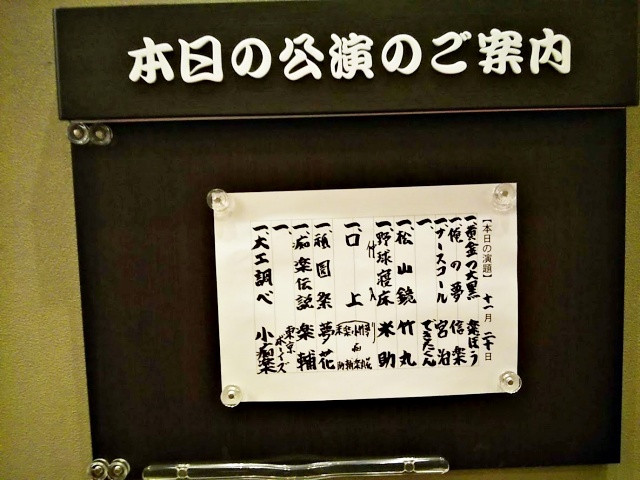 本日の公演のご案内
【本日の演題】 十一月 二十日
一、黄金の大黒 楽ぼう
一、俺の夢 信楽
一、ナースコール 宮治
一、 できたくん
一、松山鏡 竹丸
一、野球寝床 米助
仲入
一、口上
一、祇園祭 夢花
一、痴楽伝説 楽輔
一、 東京ボーイズ
一、大工調べ 小痴楽